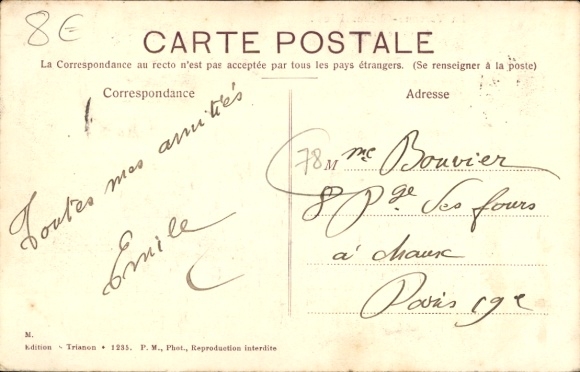 8€
CARTE POSTALE
La Correspondance au recto n'est pas acceptée par tous les pays étrangers. (Se renseigner à la poste)
Correspondance
Toutes mes amitiés
Emile
Adresse
78
Mme Bouvier
8 Pge des fours
à chaux
Paris 19e
M.
Edition - Trianon • 1235. P. M., Phot., Reproduction interdite